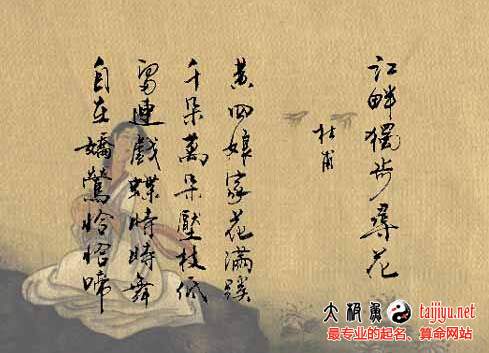 江畔獨步尋花
杜甫
黃四娘家花滿蹊
千朵萬朵壓枝低
留連戲蝶時時舞
自在嬌鶯恰恰啼
大极鱼 taijiyu.net
最专业的起名、算命网站